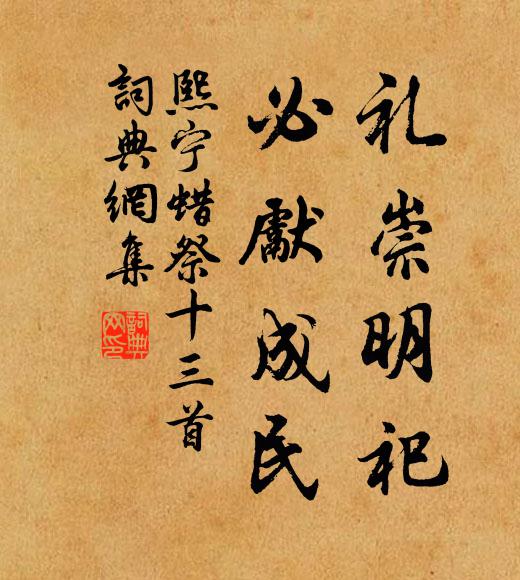 礼崇明祀
必獻成民
熙宁蜡祭十三首
詞典網集
詞典网印